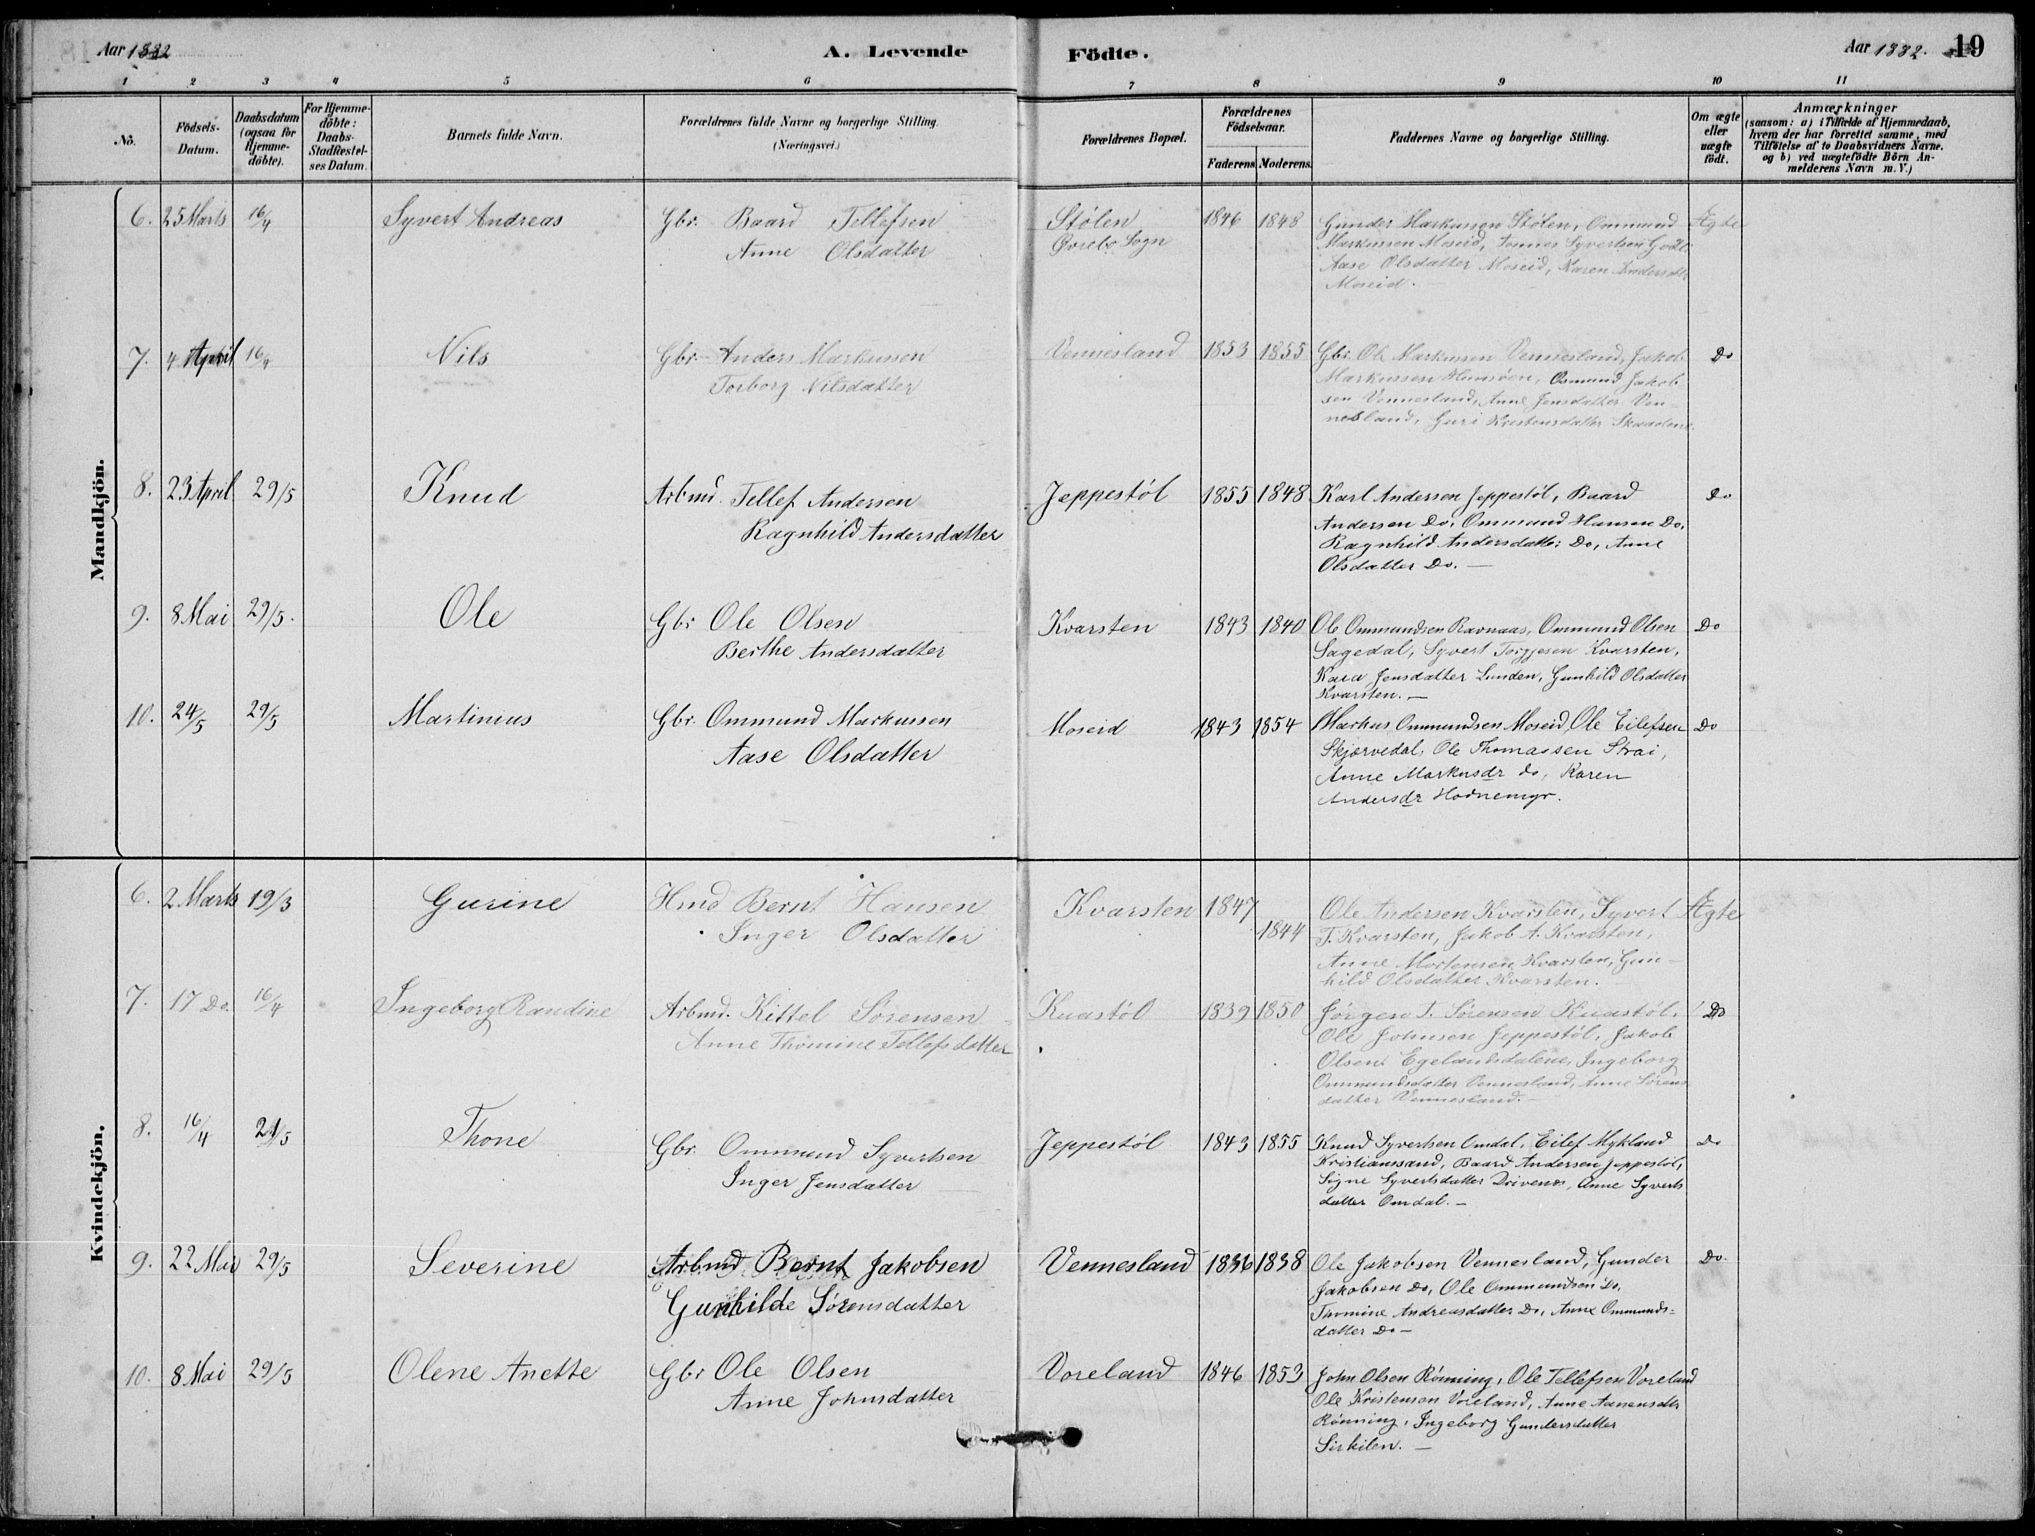 Aar 1882
A. Levende
Födte.
Aar 1882. 19
1 2 3 4 5 6 7 8 9 10 11
Nö.
Födsels-
Datum.
Daabsdatum
(ogsaa for
Hjemme-
döbte).
For Hjemme-
döbte:
Daabs-
Stadfæstel-
ses Datum.
Barnets fulde Navn.
Forældrenes fulde Navne og borgerlige Stilling.
(Næringsvei.)
Forældrenes Bopæl.
Forældrenes
Födselsaar.
Faderens. Moderens.
Faddernes Navne og borgerlige Stilling.
Om ægte
eller
uægte
födt.
Anmærkninger
(saasom: a) i Tilfælde af Hjemmedaab,
hvem der har forrettet samme, med
Tilföielse af to Daabsvidners Navne.
og b) ved uægtefödte Börn An-
melderens Navn m. V.)
Mandkjön.
6. 25 Marts 16/4 Syvert Andreas Gbr. Baard Tellefsen Stølen 1846 1848 Gunder Markussen Stølen, Ommund Ægte
Anne Olsdatter Øvrebø Sogn Markussen Moseid, Tønnes Syvertsen
Aase Olsdatter Moseid, Karen Andersdtr
Moseid.
7. 4 April 16/4 Nils Gbr. Anders Markussen Vennesland 1853 1855 Gbr. Ole Markussen Vennesland, Jakob Do
Torborg Nilsdatter Markussen Hunsøen, Osmund Jakob
sen Vennesland, Anne Jensdatter Ven-
nesland, Guri Kristensdatter
8. 23 April 29/5 Knud Arbmd. Tellef Andersen Jeppestøl 1855 1848 Karl Andersen Jeppestøl, Baard Do
Ragnhild Andersdatter Andersen Do, Ommund Hansen Do,
Ragnhild Andersdatter Do, Anne
Olsdatter Do. —
9. 8 Mai 29/5. Ole Gbr Ole Olsen Kvarsten 1843 1840 Ole Ommundsen Ravnaas, Ommund Olsen Do
Berthe Andersdatter Sagedal, Syvert Torgjesen Kvarsten,
Kara Jensdatter Lunden, Gunhild Olsdatter
Kvarsten. —
10. 24/5 29/5 Martinius Gbr. Ommund Markussen Moseid 1843 1854 Markus Ommundsen Moseid, Ole Eilefsen Do
Aase Olsdatter Skjærvedal, Ole Thomassen Strai,
Anne Markusdr do, Karen
Andersdr Hodnemyr.
Kvindekjön.
6. 2 Marts 19/3 Gurine Hmd Bernt Hansen Kvarsten 1847 Ole Andersen Kvarsten, Syvert Ægte
Inger Olsdatter 1844 T. Kvarsten, Jakob A. Kvarsten,
Anne Mortensen Kvarsten, Gun-
hild Olsdatter Kvarsten.
7. 17 Do. 16/4 Ingeborg Randine Arbmd. Kittel Sørensen Kuastøl 1839 1850 Jørgen T. Sørensen Kuastøl, Do
Anne Thomine Tellefsdatter Ole Johnsen Jeppestøl, Jakob
Olsen Egelandsdalene, Ingeborg
Ommundsdatter Vennesland, Anne Sørens
datter Vennesland. —
8. 16/4 29/5 Thone Gbr. Ommund Syvertsen Jeppestøl 1843 1855 Knud Syvertsen Omdal, Eilef Mykland Do
Inger Jensdatter Kristianssand, Baard Andersen Jeppestøl,
Signe Syvertsdatter Drivenes, Anne Syverts
datter Omdal. —
9. 22 Mai 29/5 Severine Arbmd Bernt Jakobsen Vennesland 1836 1838 Ole Jakobsen Vennesland, Gunder Do.
Gunhilde Sørensdatter Jakobsen Do, Ole Ommundsen Do,
Thomine Andreasdatter Do, Anne Ommunds-
datter Do —
10. 8 Mai 29/5 Olene Anette Gbr Ole Olsen Voreland 1846 1853 John Olsen Rønning, Ole Tellefsen Voreland
Anne Johnsdatter Ole Kristensen Voreland, Anne Aanensdtr
Rønning, Ingeborg Gundersdatter
Sirkilen. —